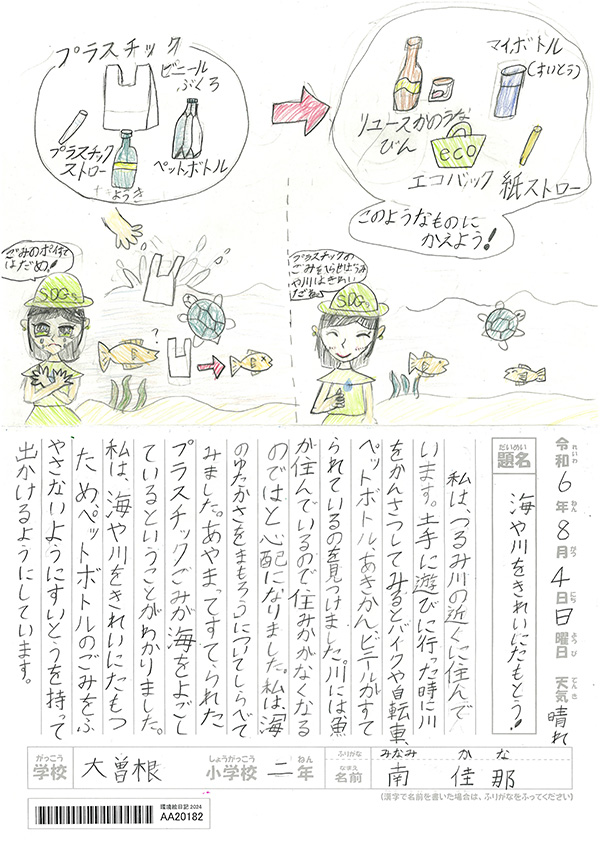 プラスチック
ビニール
ぶくろ
プラスチック
ストロー
ペットボトル
ようき
マイボトル
(すいとう)
リユースかのうな
びん
eco
エコバック
紙ストロー
このようなものに
かえよう!
ごみのポイすて
はだめ!
SDGs
?
プラスチックの
ごみをへらせば海
や川はきれい
だね♪
SDGs
令和6年8月4日日曜日 天気 晴れ
れいわ ねん がつ にち ようび てんき
だいめい
題名
海や川をきれいにたもとう!
私は、つるみ川の近くに住んで
います。土手に遊びに行った時に川
をかんさつしてみるとバイクや自転車、
ペットボトル、あきかん、ビニールがすて
られているのを見つけました。川には魚
が住んでいるので、住みかがなくなる
のではと心配になりました。私は、「海
のゆたかさをまもろう」についてしらべて
みました。あやまってすてられた
プラスチックごみが海をよごし
ているということがわかりました。
私は、海や川をきれいにたもつ
ためペットボトルのごみをふ
やさないようにすいとうを持って
出かけるようにしています。
がっこう しょうがっこう ねん
学校 大曽根 小学校 二年
ふりがな みなみ かな
なまえ
名前 南 佳那
(漢字で名前を書いた場合は、ふりがなをふってください)
環境絵日記2024
AA20182